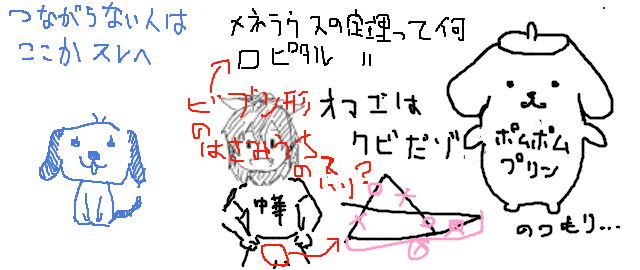 つながらない人は
ここかスレへ
メネラウスの定理って何
ロピタル 〃
ビブン形
の
はさみうち
のヤツ
オマエは
クビだゾ
中華
ポムポム
プリン
のつもり...